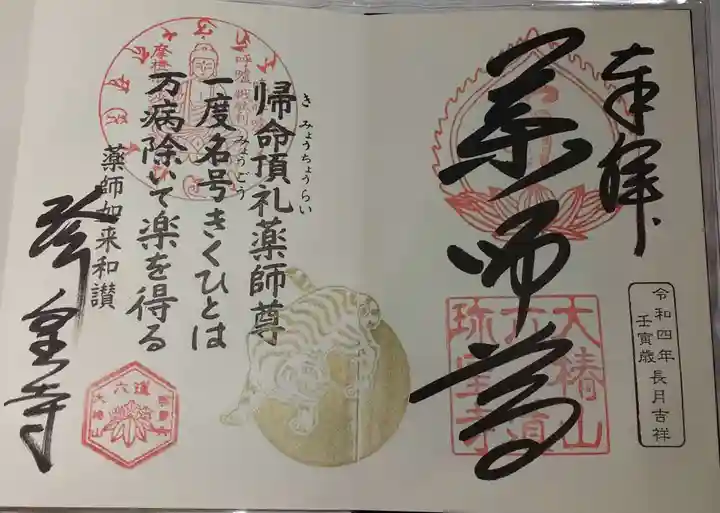 奉拝
薬師尊
大椿山
六道
珎皇寺
令和四年長月吉祥
壬寅歳
帰命頂礼薬師尊
きみょうちょうらい
一度名号きくひとは
みょうごう
万病除いて楽を得る
薬師如来和讃
珎皇寺
六道
大椿山